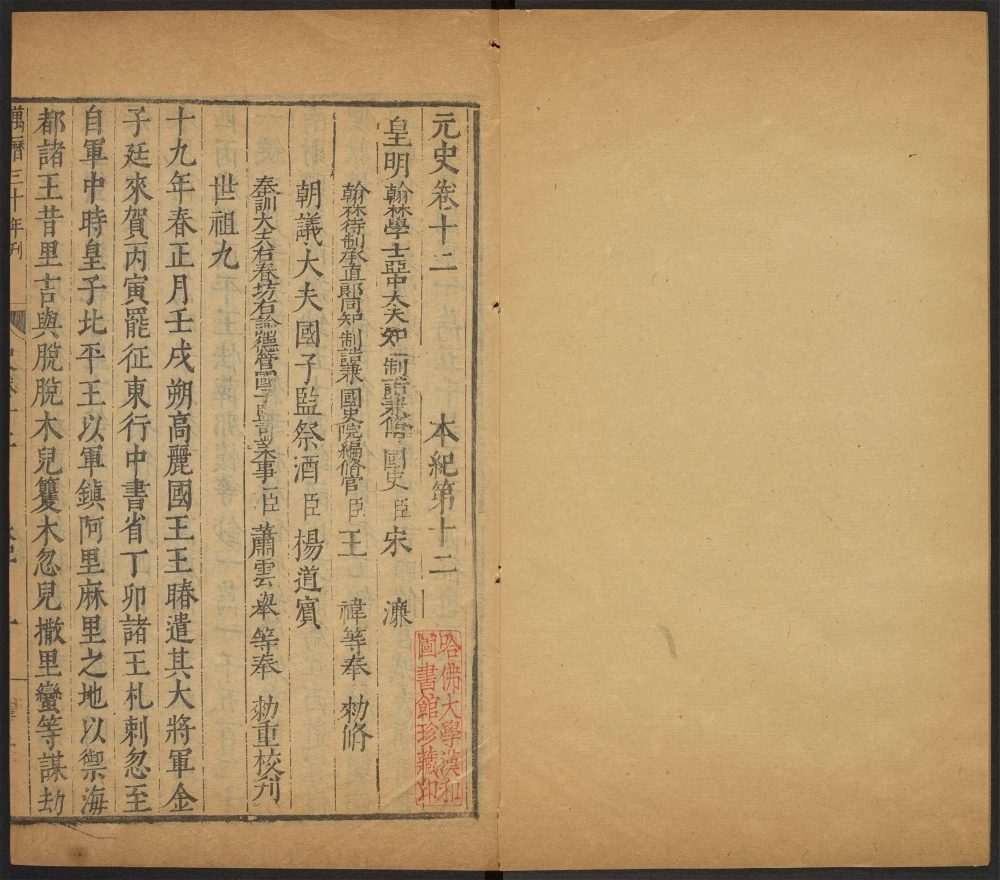 元史卷十二 本紀第十二
皇明翰林學士亞中大夫知制誥兼修國史臣宋濂
翰林待制承直郎同知制誥兼國史院編脩官臣王禕等奉勑脩
朝議大夫國子監祭酒臣楊道賓
奉訓大夫右春坊右諭德管國子監司業事臣蕭雲舉等奉勑重校刊
世祖九
十九年春正月壬戌朔高麗國王王賰遣其大將軍金
子廷來賀丙寅罷征東行中書省丁卯諸王札剌忽至
自軍中時皇子北平王以軍鎮阿里麻里之地以禦海
都諸王昔里吉與脫脫木兒籰木忽兒撒里蠻等謀劫
萬曆三十年刊
哈佛大學漢和
圖書館珍藏印